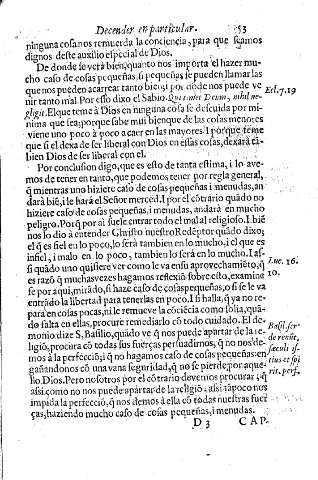 Decender en particular. 53
ninguna cosa nos remuerda la conciencia, para que seamos
dignos deste auxilio especial de Dios.
De donde se verà bien, quanto nos importa el hazer mu-
cho caso de cosas pequeñas, si pequeñas se pueden llamar las
que nos pueden acarrear tanto bien; i por dõde nos puede ve
nir tanto mal. Por esso dixo el Sabio. Qui timet Deum, nihil ne-
gligit. El que teme à Dios en ninguna cosa se descuida por mi-
nima que sea; porque sabe mui bien que de las cosas menores
viene uno poco à poco a caer en las mayores. I porque teme
que si el dexa de ser liberal con Dios en essas cosas, dexarà tã-
bien Dios de ser liberal con el.
Por conclusion digo, que es esto de tanta estima, i lo ave-
mos de tener en tanto, que podemos tener por regla general,
q̃ mientras uno hiziere caso de cosas pequeñas i menudas, an
darà biẽ, i le harà el Señor merced. I por el cõtrario quãdo no
hiziere caso de cosas pequeñas, i menudas, andarà en mucho
peligro. Porq̃ por aì suele entrar todo el mal al religioso. I biẽ
nos lo diò a entender Christo nuestro Redẽptor quãdo dixo;
el q̃ es fiel en lo poco, lo serà tambien en lo mucho; i el que es
infiel, i malo en lo poco, tambien lo serà en lo mucho. I as-
si quãdo uno quisiere ver como le va en su aprovechamiẽto, q̃
es razõ q̃ muchas vezes hagamos reflexiõ sobre esto, examine
se por aqui, mirãdo, si haze caso de cosas pequeñas; o si se le va
entrãdo la libertad para tenerlas en poco. I si halla, q̃ ya no re-
para en cosas pocas, ni le remueve la cõciẽcia como solia, quã-
do falta en ellas, procure remediarlo cõ todo cuidado. El de-
monio dize S. Basilio, quãdo ve q̃ nos puede apartar de la re-
ligiõ, procura cõ todas sus fuerças persuadirnos, q̃ no nos de-
mos à la perfecciõ; i q̃ no hagamos caso de cosas pequeñas: en
gañandonos cõ una vana seguridad, q̃ no se pierde por aque-
llo Dios. Pero nosotros por el cõtrario devemos procurar; q̃
assi como no nos puede apartar de la religiõ; assi tãpoco nos
impida la perfecciõ, q̃ nos demos à ella cõ todas nuestras fuer
ças, haziendo mucho caso de cosas pequeñas, i menudas.
D 3 CAP-
Ecl. 7. 19
Luc. 16.
10.
Basil. ser.
de renũt.
sæculi is-
tius et spi
rit. perf.